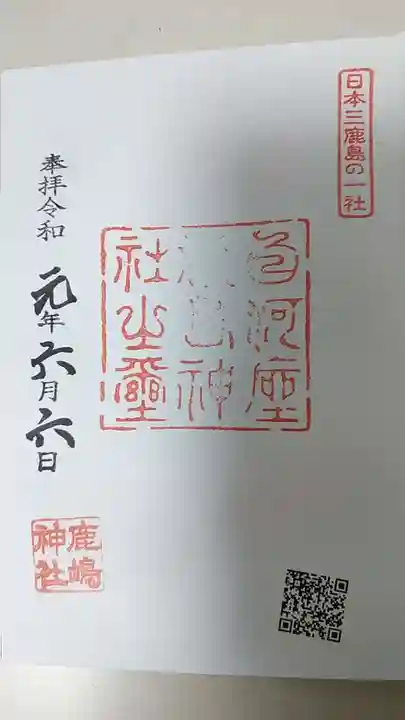 日本三鹿島の一社
白河座
神
社之璽
奉拝令和元年六月六日
鹿嶋
神社